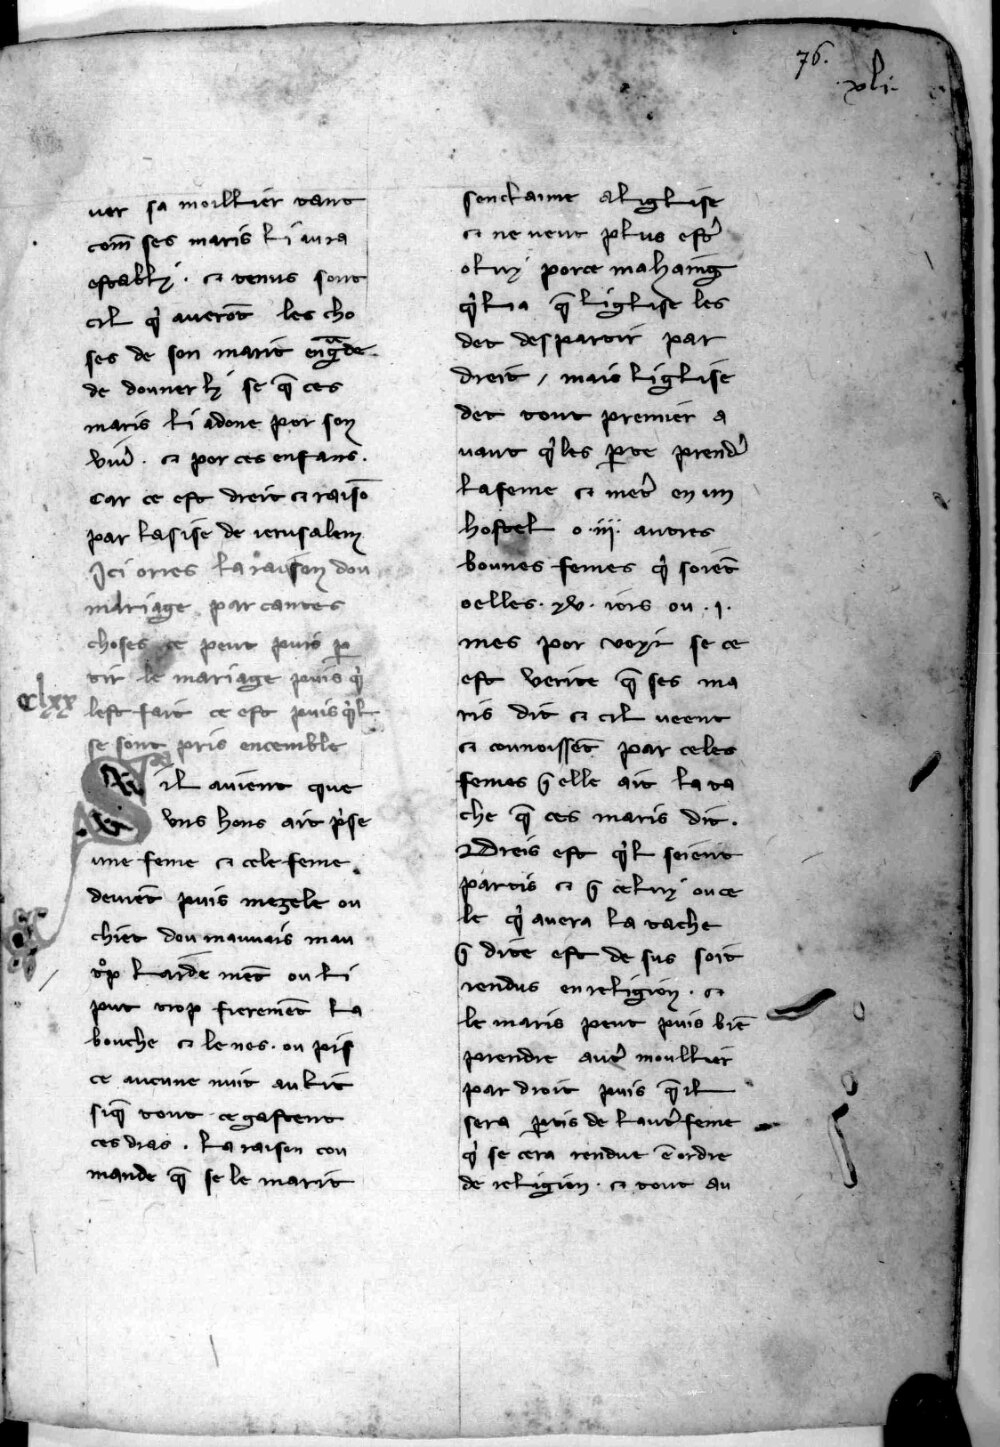 76.
xli.
uer sa moillier tant
com̄ ses maris li aura
establi. ⁊ tenus sont
cil q̓ auerōt les cho
ses de son marit eng̃de
de donner li se q̄ ces
maris li a done por son
viur̓. ⁊ por ces enfans.
Car ce est dreit ⁊ raisō
par lasise de ierusalem
Ici orres la raison dou
mariage par cantes
choses ce peut puis ꝑ
tir le mariage puis q̓
lest fait ce est puis q̓l
se sont pris encemble
clxx
Sil auient que
vns hons ait p̓se
une feme ⁊ cele feme
deuiēt puis mezele ou
chiet dou mauuais mau
trop laide mēt ou li
put trop fieremēt la
bouche ⁊ le nes. ou pis
ce aucune nuit au lit
siq̄ tout ce gastent
ces dras. La raison cou
mande q̄ se le marit
senclaime a liglise
⁊ ne ueut plus estr̓
o luy por ce mahaing
q̓l i a q̄ liglise les
det despartir par
dreit / mais liglise
det tout premier a
uant q̓ les ꝑte prendr̓
la feme ⁊ metr̓ en un
hostel o .iii. autres
bounes femes q̓ soiēt
o elles. xv. iors ou .i.
mes por veyr se ce
est verite q̄ ses ma
ris dit ⁊ cil ueent
⁊ connoissēt par celes
femes q̄ elle ait la ta
che q̄ ces maris dit.
Dreis est q̓l seient
partis ⁊ q̄ celuy ou ce
le q̓ auera la tache
q̄ dite est de sus soit
rendus en religion. ⁊
le maris peut puis biē
prendre autr̓ moullier
par droit puis q̄ il
sera ꝑtis de lautr̓ feme
q̓ se cera rendue ē ordre
de religion. ⁊ tout au